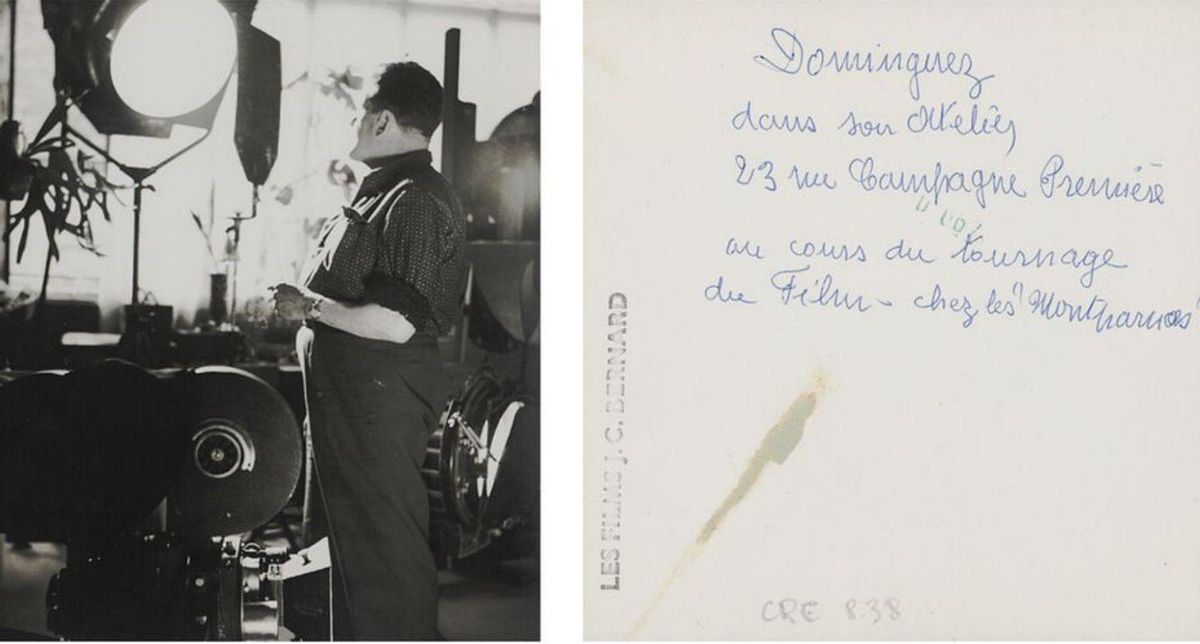 Dominguez
dans son Atelier
23 rue Campagne Première
au cours du tournage
du Film - chez les "Montparnos"
LES FILMS J. C. BERNARD
CRE 838